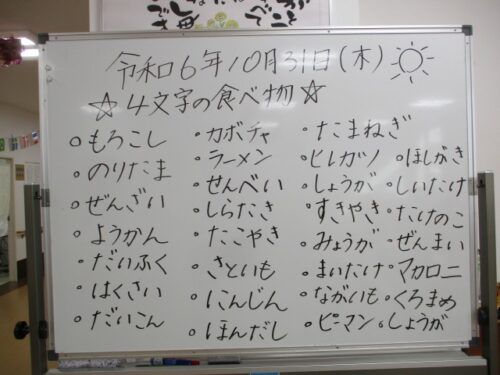 令和6年10月31日(木)
☆4文字の食べ物☆
もろこし
のりたま
ぜんざい
ようかん
だいふく
はくさい
だいこん
カボチャ
ラーメン
せんべい
しらたき
たこやき
さといも
にんじん
ほんだし
たまねぎ
ヒレカツ
しょうが
すきやき
みょうが
まいたけ
ながいも
ピーマン
ほしがき
しいたけ
たけのこ
ぜんまい
マカロニ
くろまめ
しょうが